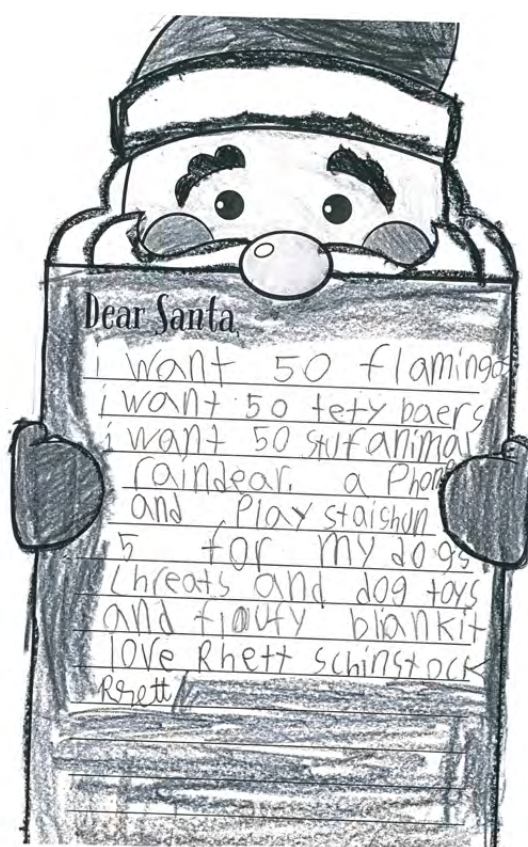 Dear Santa,
i want 50 flamingos
i want 50 tety baers
i want 50 stufanimal
raindear. a Phone
and Play staishun
5 for my dogs
threats and dog toys
and floufy blankit
love Rhett schinstock
Rhett